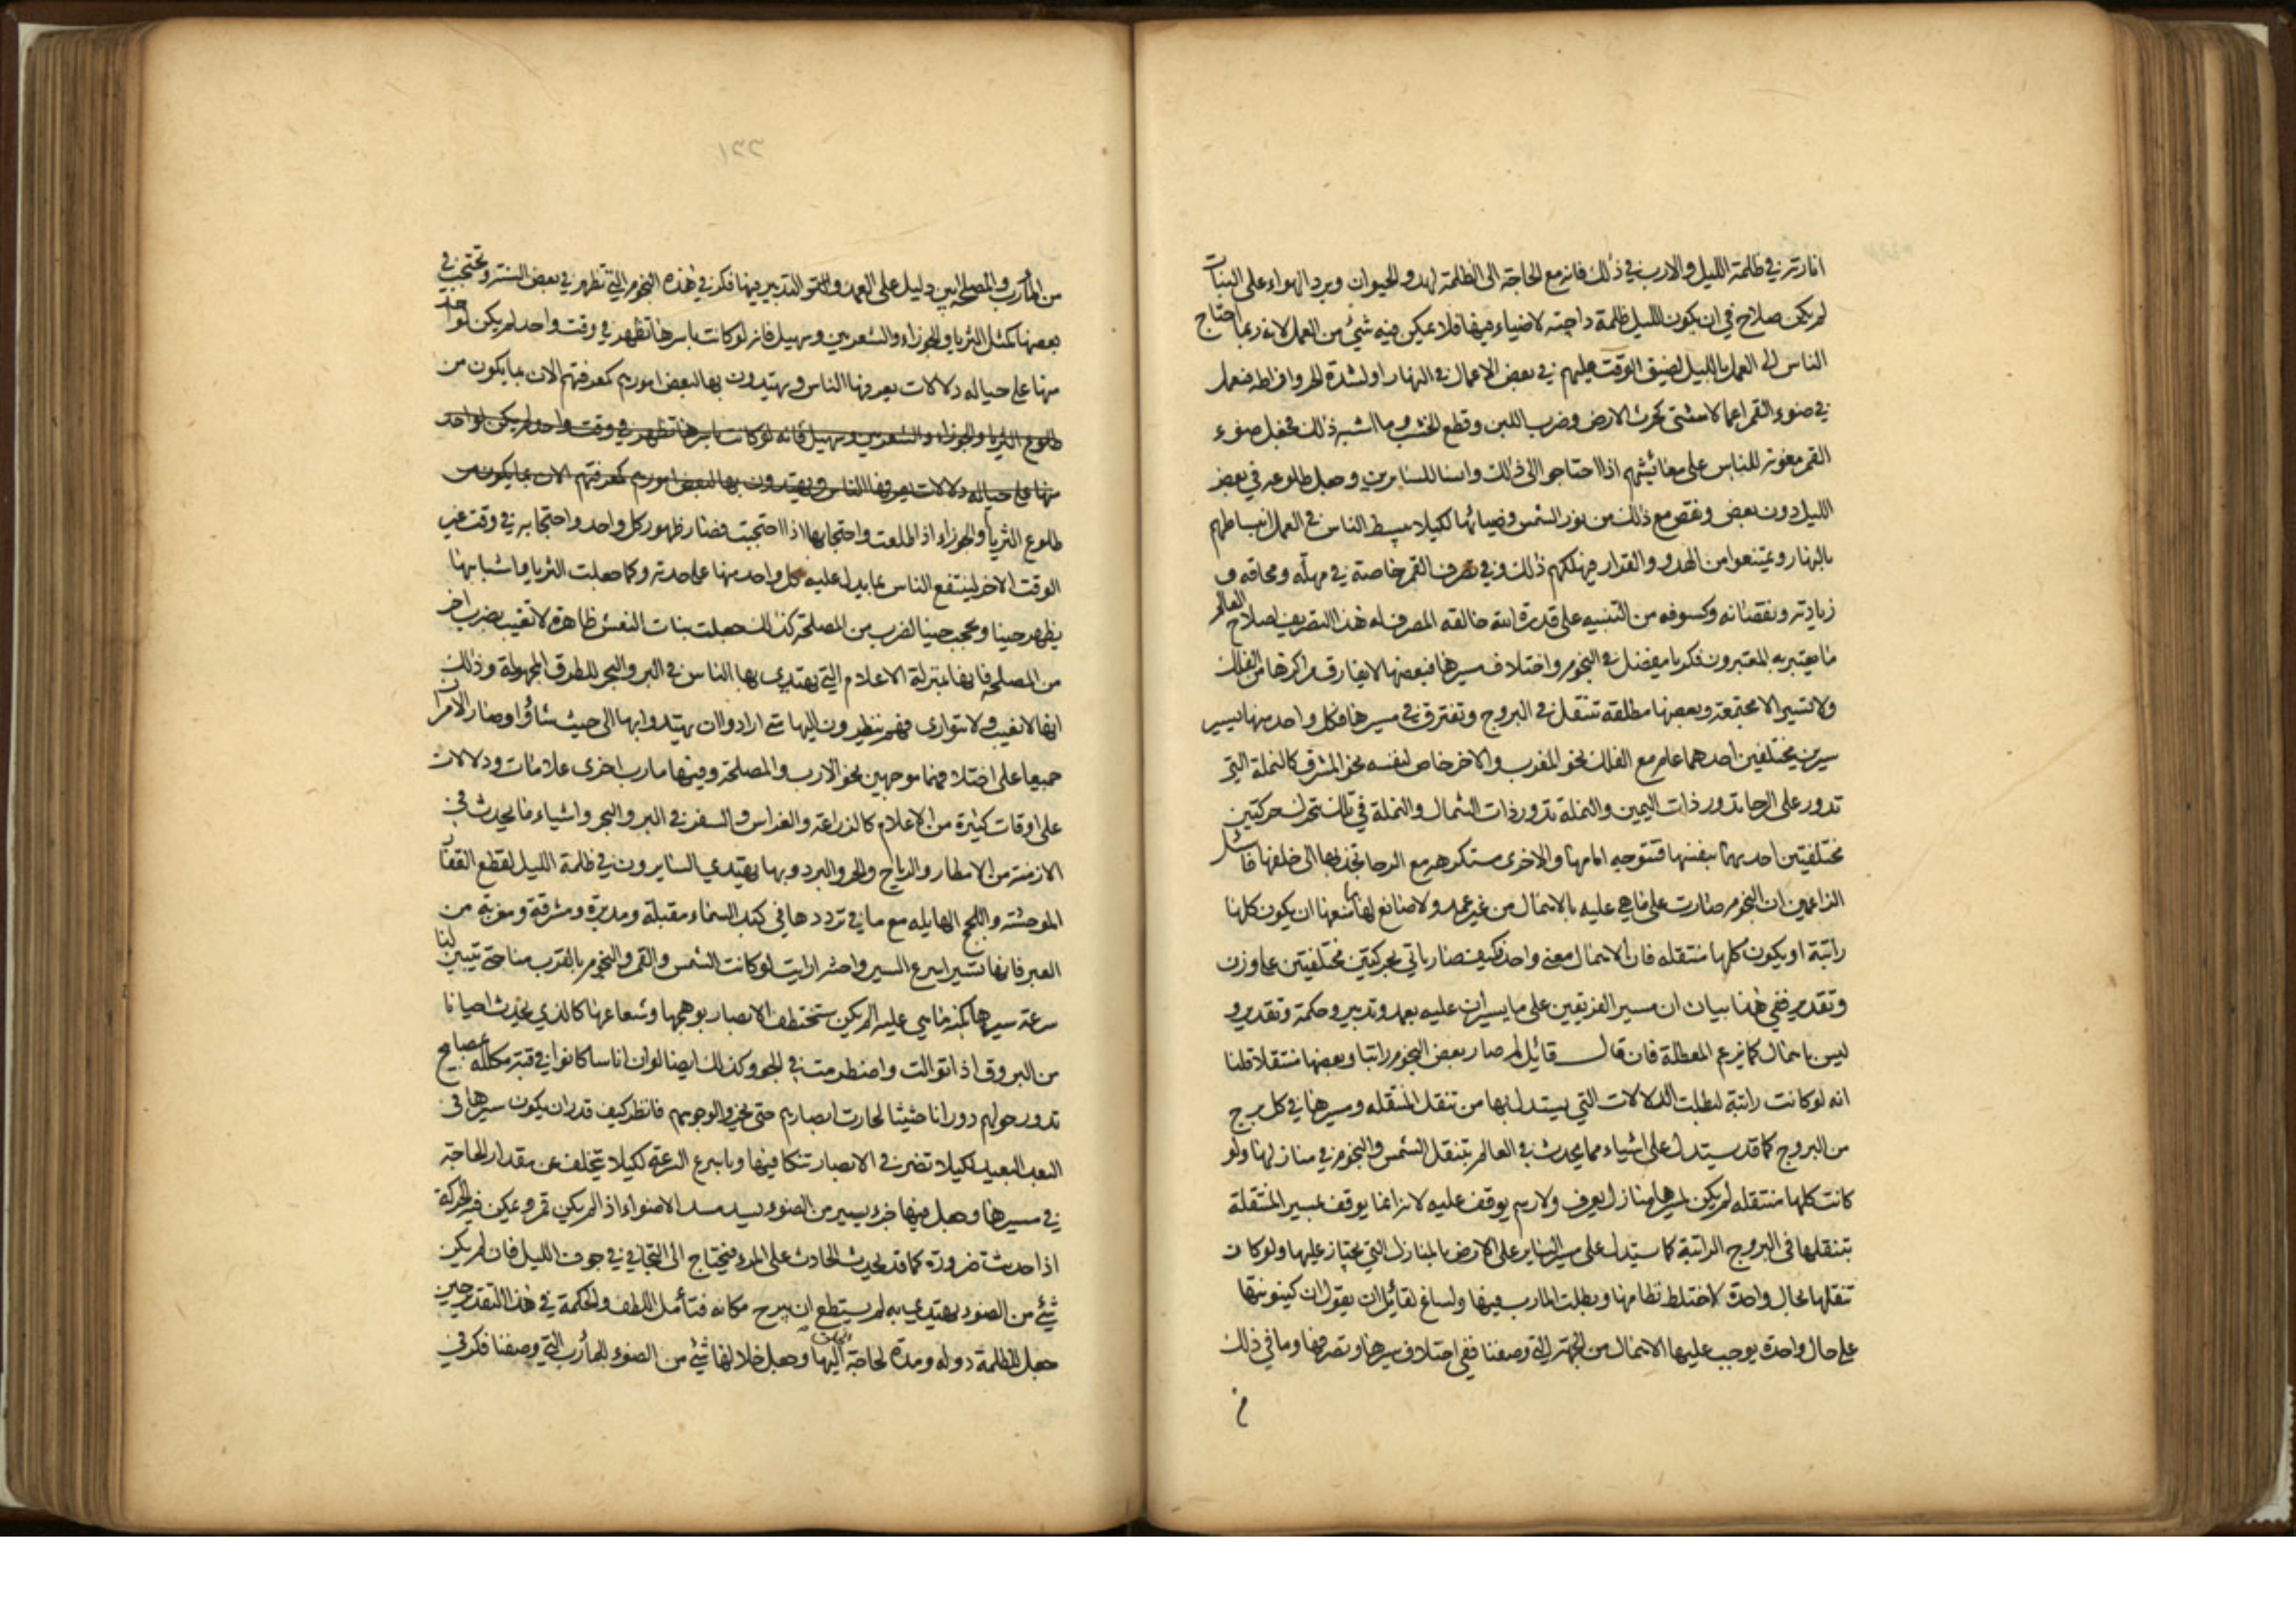 انارته في ظلمة الليل والارب في ذلك فانه مع الحاجة الى الظلمة لهدو الحيوان وبرد الهواء على النبات
لم يكن صلاح في ان يكون الليل ظلمة داجية لا ضياء فيها فلا يمكن فيه شئ من العمل لانه ربما احتاج
الناس الى العمل بالليل لضيق الوقت عليهم في بعض الاعمال في النهار او لشدة الحر وافراطه فيعمل
في ضوء القمر اعمالا شتى كحرث الارض وضرب اللبن وقطع الخشب وما اشبه ذلك فجعل ضوء
القمر معونة للناس على معائشهم اذا احتاجوا الى ذلك وانسا للسايرين وجعل طلوعه في بعض
الليل دون بعض ونقص مع ذلك من نور الشمس وضيائها لكيلا يبسط الناس في العمل انبساطهم
بالنهار ويمتنعوا من الهدو والقرار فيهلكهم ذلك وفي تصرف القمر خاصة في مهله ومحاقه و
زيادته ونقصانه وكسوفه من التنبيه على قدرة الله خالقه المصرف له هذا التصريف لصلاح العالم
ما يعتبر به المعتبرون فكر يا مفضل في النجوم واختلاف مسيرها فبعضها لا يفارق مراكزها من الفلك
ولا تسير الا مجتمعة وبعضها مطلقة تنتقل في البروج وتفترق في مسيرها فكل واحد منها يسير
سيرين مختلفين احدهما عام مع الفلك نحو المغرب والاخر خاص لنفسه نحو المشرق كالنملة التي
تدور على الرحا تدور ذات اليمين والنملة تدور ذات الشمال والنملة في تلك تتحرك حركتين
مختلفتين احديهما بنفسها فتتوجه امامها والاخرى مستكرهه مع الرحا تجذبها الى خلفها فاسئل
الزاعمين ان النجوم صارت على ما هي عليه بالاهمال من غير عمد ولا صانع لها ما منعها ان يكون كلها
راتبة او يكون كلها منتقله فان الاهمال معنى واحد فكيف صار ياتي بحركتين مختلفتين على وزن
وتقدير ففي هذا بيان ان مسير الفريقين على ما يسيران عليه بعمد وتدبير وحكمة وتقدير و
ليس باهمال كما يزعم المعطلة فان قال قائل لم صار بعض النجوم راتبا وبعضها منتقلا قلنا
انه لو كانت راتبة لبطلت الدلالات التي يستدل بها من تنقل المنتقله ومسيرها في كل برج
من البروج كما قد يستدل على اشياء مما يحدث في العالم بتنقل الشمس والنجوم في منازلها ولو
كانت كلها منتقله لم يكن لمسيرها منازل يعرف ولا رسم يوقف عليه لانه انما يوقف بمسير المنتقلة
بتنقلها في البروج الراتبة كما يستدل على سير الساير على الارض بالمنازل التي يجتاز عليها ولو كان
تنقلها بحال واحدة لاختلط نظامها وبطلت المارب فيها ولساغ لقائل ان يقول ان كينونتها
على حال واحدة يوجب عليها الاهمال من الجهة التي وصفنا ففي اختلاف سيرها وتصرفها وما في ذلك
من
١٢٢١
من المأرب والمصلحة ابين دليل على العمد والتدبير فيها فكر في هذه النجوم التي تظهر في بعض السنة وتحتجب في
بعضها كمثل الثريا والجوزاء والشعريين وسهيل فانه لو كانت باسرها تظهر في وقت واحد لم يكن لواحد
منها على حياله دلالات يعرفها الناس ويهتدون بها لبعض امورهم كمعرفتهم الان بما يكون من
طلوع الثريا والجوزاء والشعريين وسهيل فانه لو كانت باسرها تظهر في وقت واحد لم يكن لواحد
منها على حياله دلالات يعرفها الناس ويهتدون بها لبعض امورهم كمعرفتهم الان بما يكون من
طلوع الثريا والجوزاء اذا طلعت واحتجابها اذا احتجبت فصار ظهور كل واحد واحتجابه في وقت غير
الوقت الاخر لينتفع الناس بما يدل عليه كل واحد منها على حدته وكما جعلت الثريا واشباهها
يظهر حينا وتحجب حينا لضرب من المصلحة كذلك جعلت بنات النعش ظاهرة لا تغيب بضرب اخر
من المصلحة فانها بمنزلة الاعلام التي يهتدي بها الناس في البر والبحر للطرق المجهولة وذلك
انها لا تغيب ولا تتوارى فهم ينظرون اليها متى ارادوا ان يهتدوا بها الى حيث شاؤا وصار الامران
جميعا على اختلافهما موجهين نحو الارب والمصلحة وفيهما مارب اخرى علامات ودلالات
على اوقات كثيرة من الاعلام كالزراعة والغراس والسفر في البر والبحر واشياء مما يحدث في
الازمنة من الامطار والرياح والحر والبرد وبها يهتدي السايرون في ظلمة الليل لقطع القفار
الموحشة واللجج الهايله مع ما في ترددها في كبد السماء مقبلة ومدبرة ومشرقة ومغربة من
العبر فانها تسير اسرع السير واحثه ارايت لو كانت الشمس والقمر والنجوم بالقرب منا حتى يتبين لنا
سرعة سيرها بكنه ما هي عليه الم يكن ستختطف الابصار بوهجها وشعاعها كالذي يحدث احيانا
من البروق اذا توالت واضطرمت في الجو وكذلك ايضا لو ان اناسا كانوا في قبة مكلله بمصابيح
تدور حولهم دورانا حثيثا لحارت ابصارهم حتى يخروا لوجوههم فانظر كيف قدر ان يكون سيرها في
البعد البعيد لكيلا تضر في الابصار تنكا فيها وباسرع السرعة لكيلا يتخلف عن مقدار الحاجة
في مسيرها وجعل فيها جزء يسير من الضوء ليسد مسد الاضواء اذا لم يكن قمر ويمكن فيه الحركة
اذا حدثت ضرورة كما قد يحدث الحادث على المرء فيحتاج الى التجافي في جوف الليل فان لم يكن
شئ من الضوء يهتدي به لم يستطع ان يبرح مكانه فتأمل اللطف والحكمة في هذا التقدير حين
جعل للظلمة دولة ومدة لحاجة اليها وجعل خلالها شئ من الضوء للمأرب التي وصفنا فكر في